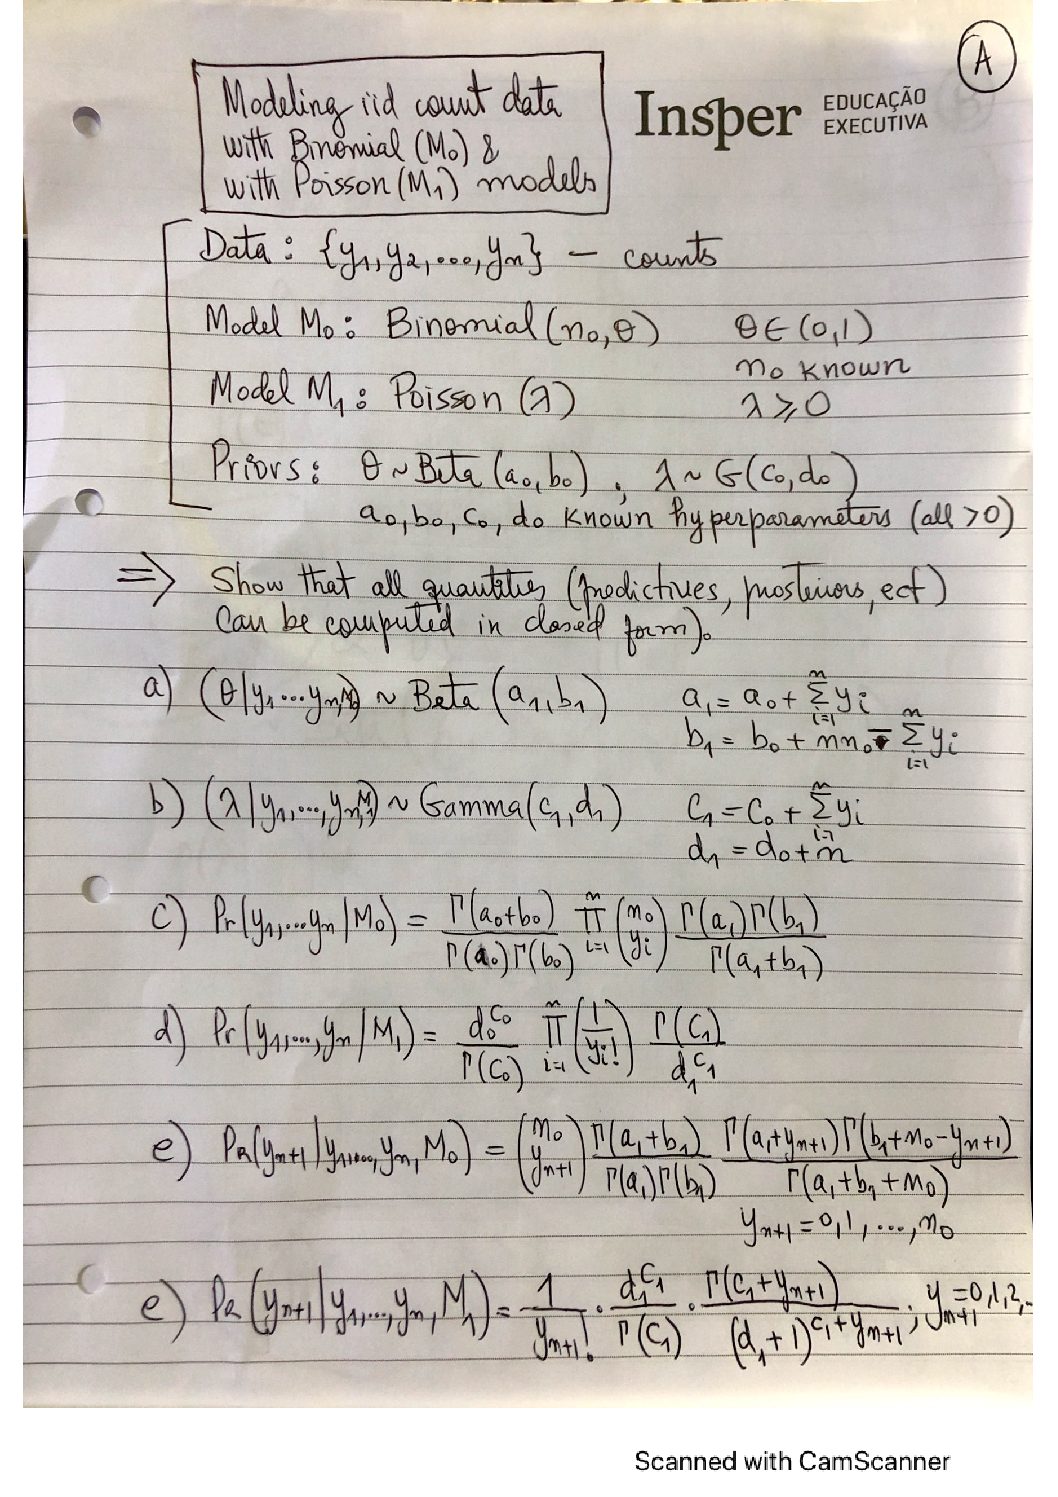 A
Modeling iid count data
with Binomial (M₀) &
with Poisson (M₁) models
Insper EDUCAÇÃO
EXECUTIVA
Data: {y₁, y₂, ..., yₙ} — counts
Model M₀: Binomial (n₀, θ) θ ∈ (0,1)
n₀ known
Model M₁: Poisson (λ) λ ≥ 0
Priors: θ ~ Beta (a₀, b₀), λ ~ G(c₀, d₀)
a₀, b₀, c₀, d₀ known hyperparameters (all > 0)
⇒ Show that all quantities (predictives, posteriors, ect)
can be computed in closed form).
a) (θ|y₁...yₙ, M₀) ~ Beta (a₁, b₁) a₁ = a₀ + Σᵢ₌₁ⁿ yᵢ
b₁ = b₀ + nn₀ - Σᵢ₌₁ⁿ yᵢ
b) (λ|y₁, ..., yₙ, M₁) ~ Gamma(c₁, d₁) c₁ = c₀ + Σᵢ₌₁ⁿ yᵢ
d₁ = d₀ + n
c) Pr(y₁, ... yₙ | M₀) = Γ(a₀+b₀) / Γ(a₀)Γ(b₀) ∏ᵢ₌₁ⁿ (n₀ yᵢ) Γ(a₁)Γ(b₁) / Γ(a₁+b₁)
d) Pr(y₁, ..., yₙ | M₁) = d₀^c₀ / Γ(c₀) ∏ᵢ₌₁ⁿ (1 / yᵢ!) Γ(c₁) / d₁^c₁
e) PR(yₙ₊₁ | y₁, ..., yₙ, M₀) = (n₀ yₙ₊₁) Γ(a₁+b₁) / Γ(a₁)Γ(b₁) Γ(a₁+yₙ₊₁)Γ(b₁+n₀-yₙ₊₁) / Γ(a₁+b₁+n₀)
yₙ₊₁ = 0, 1, ..., n₀
e) PR(yₙ₊₁ | y₁, ..., yₙ, M₁) = 1 / yₙ₊₁! · d₁^c₁ / Γ(c₁) · Γ(c₁+yₙ₊₁) / (d₁+1)^(c₁+yₙ₊₁); yₙ₊₁ = 0, 1, 2, ..
Scanned with CamScanner